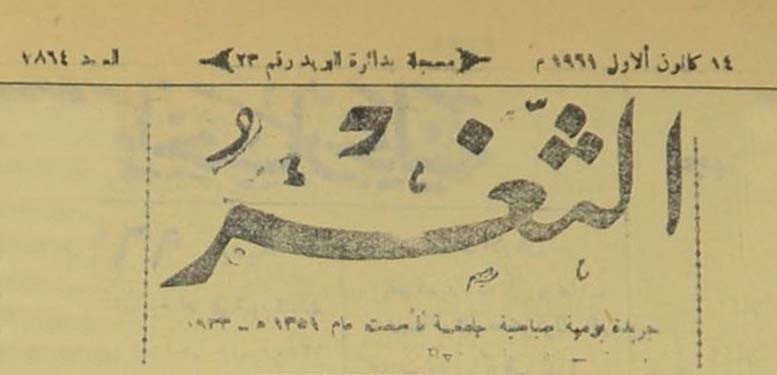 ١٤ كانون الاول ١٩٦١ م مسجلة بدائرة البريد رقم ٢٣ العدد ٢٨٦٤
الثَّغْرُ
جريدة يومية صباحية جامعة تأسست عام ١٣٥١ هـ - ١٩٣٣